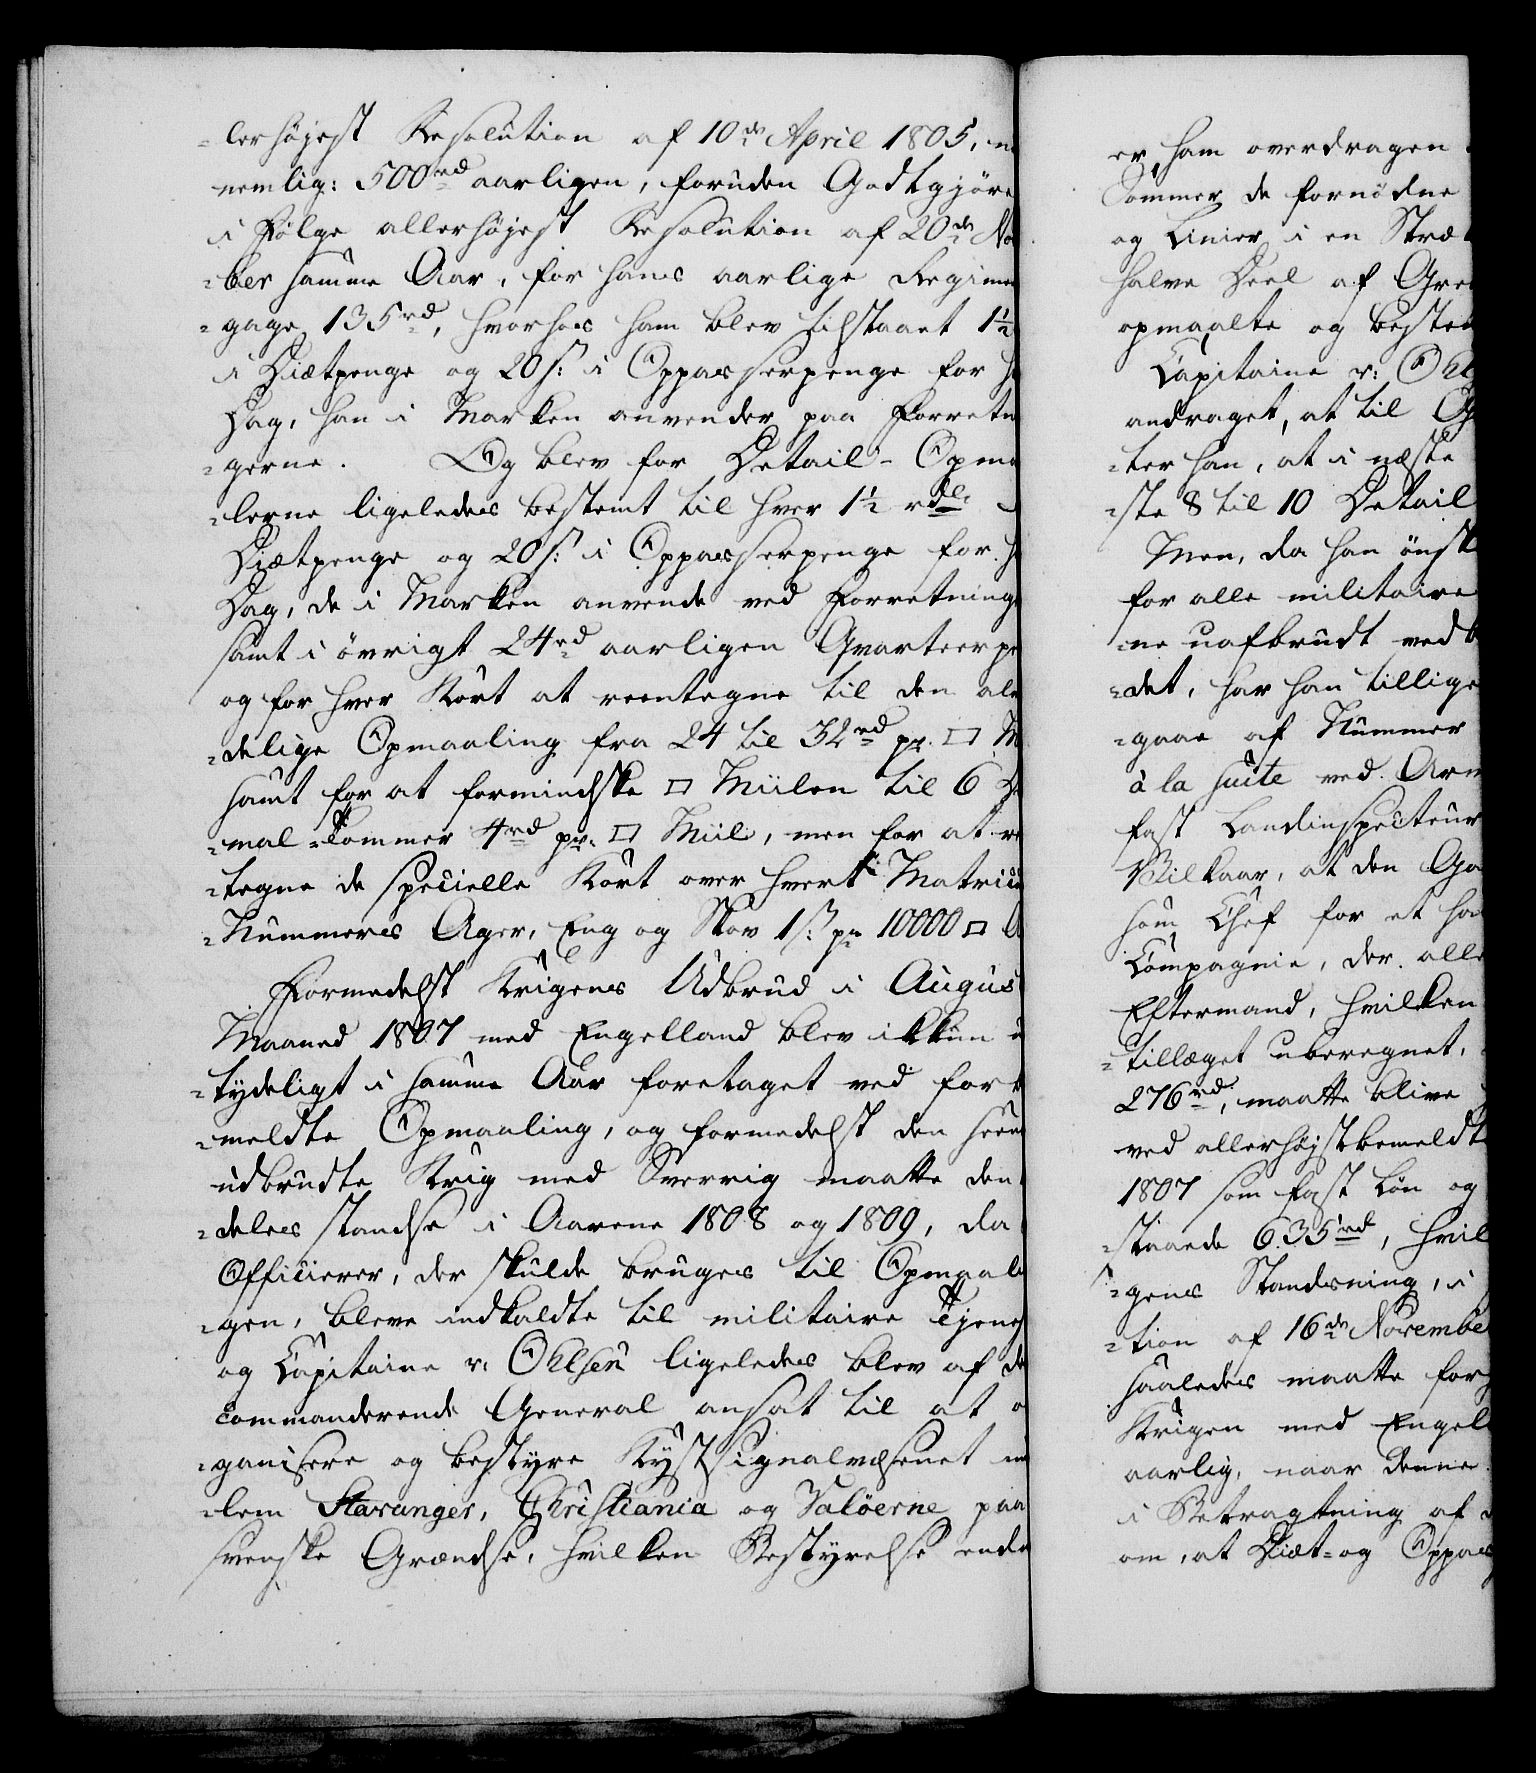 -lerhøjest Resolution af 10de April 1805, n
nemlig: 500rd aarligen, foruden Godtgjöre
i Følge allerhøjest Resolution af 20de No
-ber samme Aar, for hans aarlige Regimen
-gage 135rd, hvorhos ham blev tilstaaet 1½
i Diætpenge og 20 s: i Oppasserpenge for h
Dag, han i Marken anvender paa Forretn
-gerne. Og blev for Detail-Opma
-lerne ligeledes bestemt til hver 1½ rdlr
Diætpenge og 20 s: i Oppasserpenge for h
Dag, de i Marken anvende ved Forretning
samt i øvrigt 24rd aarligen Qvarteerpe
og for hver Kort at reentegne til den al
-delige Opmaaling fra 24 til 32rd pr. □ M
samt for at formindske □ Miilen til 6 De
-mal-Tommer 4rd pr. □ Miil, men for at re
-tegne de specielle Kort over hvert Matricu
-Nummeres Ager, Eng og Skov 1 s: pr 10000 □ A
Formedelst Krigens Udbrud i Augus
Maaned 1807 med Engelland blev ikkun u
-tydeligt i samme Aar foretaget ved for
-meldte Opmaaling, og formedelst den seene
udbrudte Krig med Sverrig maatte den
-deles standse i Aarene 1808 og 1809, da
Officierer, der skulde bruges til Opmaali
-gen, bleve indkaldte til militaire Tjenes
og Capitaine v: Ohlsen ligeledes blev af de
commanderende General ansat til at o
-ganisere og bestyre Kystsignalvæsenet m
-lem Stavanger, Christiania og Valøerne paa
svenske Grændse, hvilken Bestyrelse ende
er ham overdragen
Sommer de fornødne
og Linier i en Stræ
halve Deel af Græ
opmaalte og beste
Capitaine v: Ohl
andraget, at til O
-ter han, at i næste
-ste 8 til 10 Detail
Men, da han ønsk
for alle militaire
-ne uafbrudt ved
-det, har han tillige
-gaae af Nummer
à la suite ved Arm
fast Landinspecteur
Vilkaar, at den Ga
som Chef for et ha
Compagnie, der alle
Eftermand, hvilken
-tillæget uberegnet,
276rd, maatte blive
ved allerhøjstbemeldte
1807 som fast Løn og
-staaede 635rd, hvil
-gens Standsning, i
-tion af 16de Novembe
saaledes maatte for
Krigen med Engel
aarlig, naar denne
i Betragtning af
om, at Diæt- og Oppas